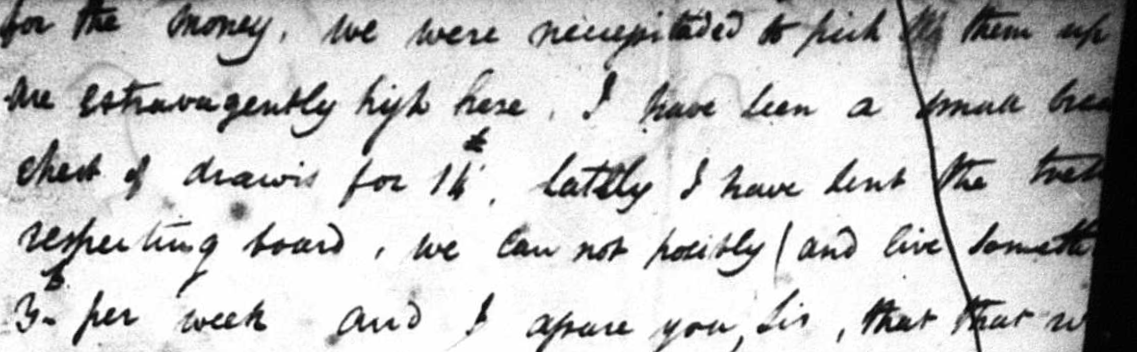 for the money, we were neccepitaded to pick them up
are extravagently high here. I have been a small
chest of drawis for 14£. Lattly I have lent the
respecting board, we can not posibly (and live
3£ per week and I assure you, Sir, that that